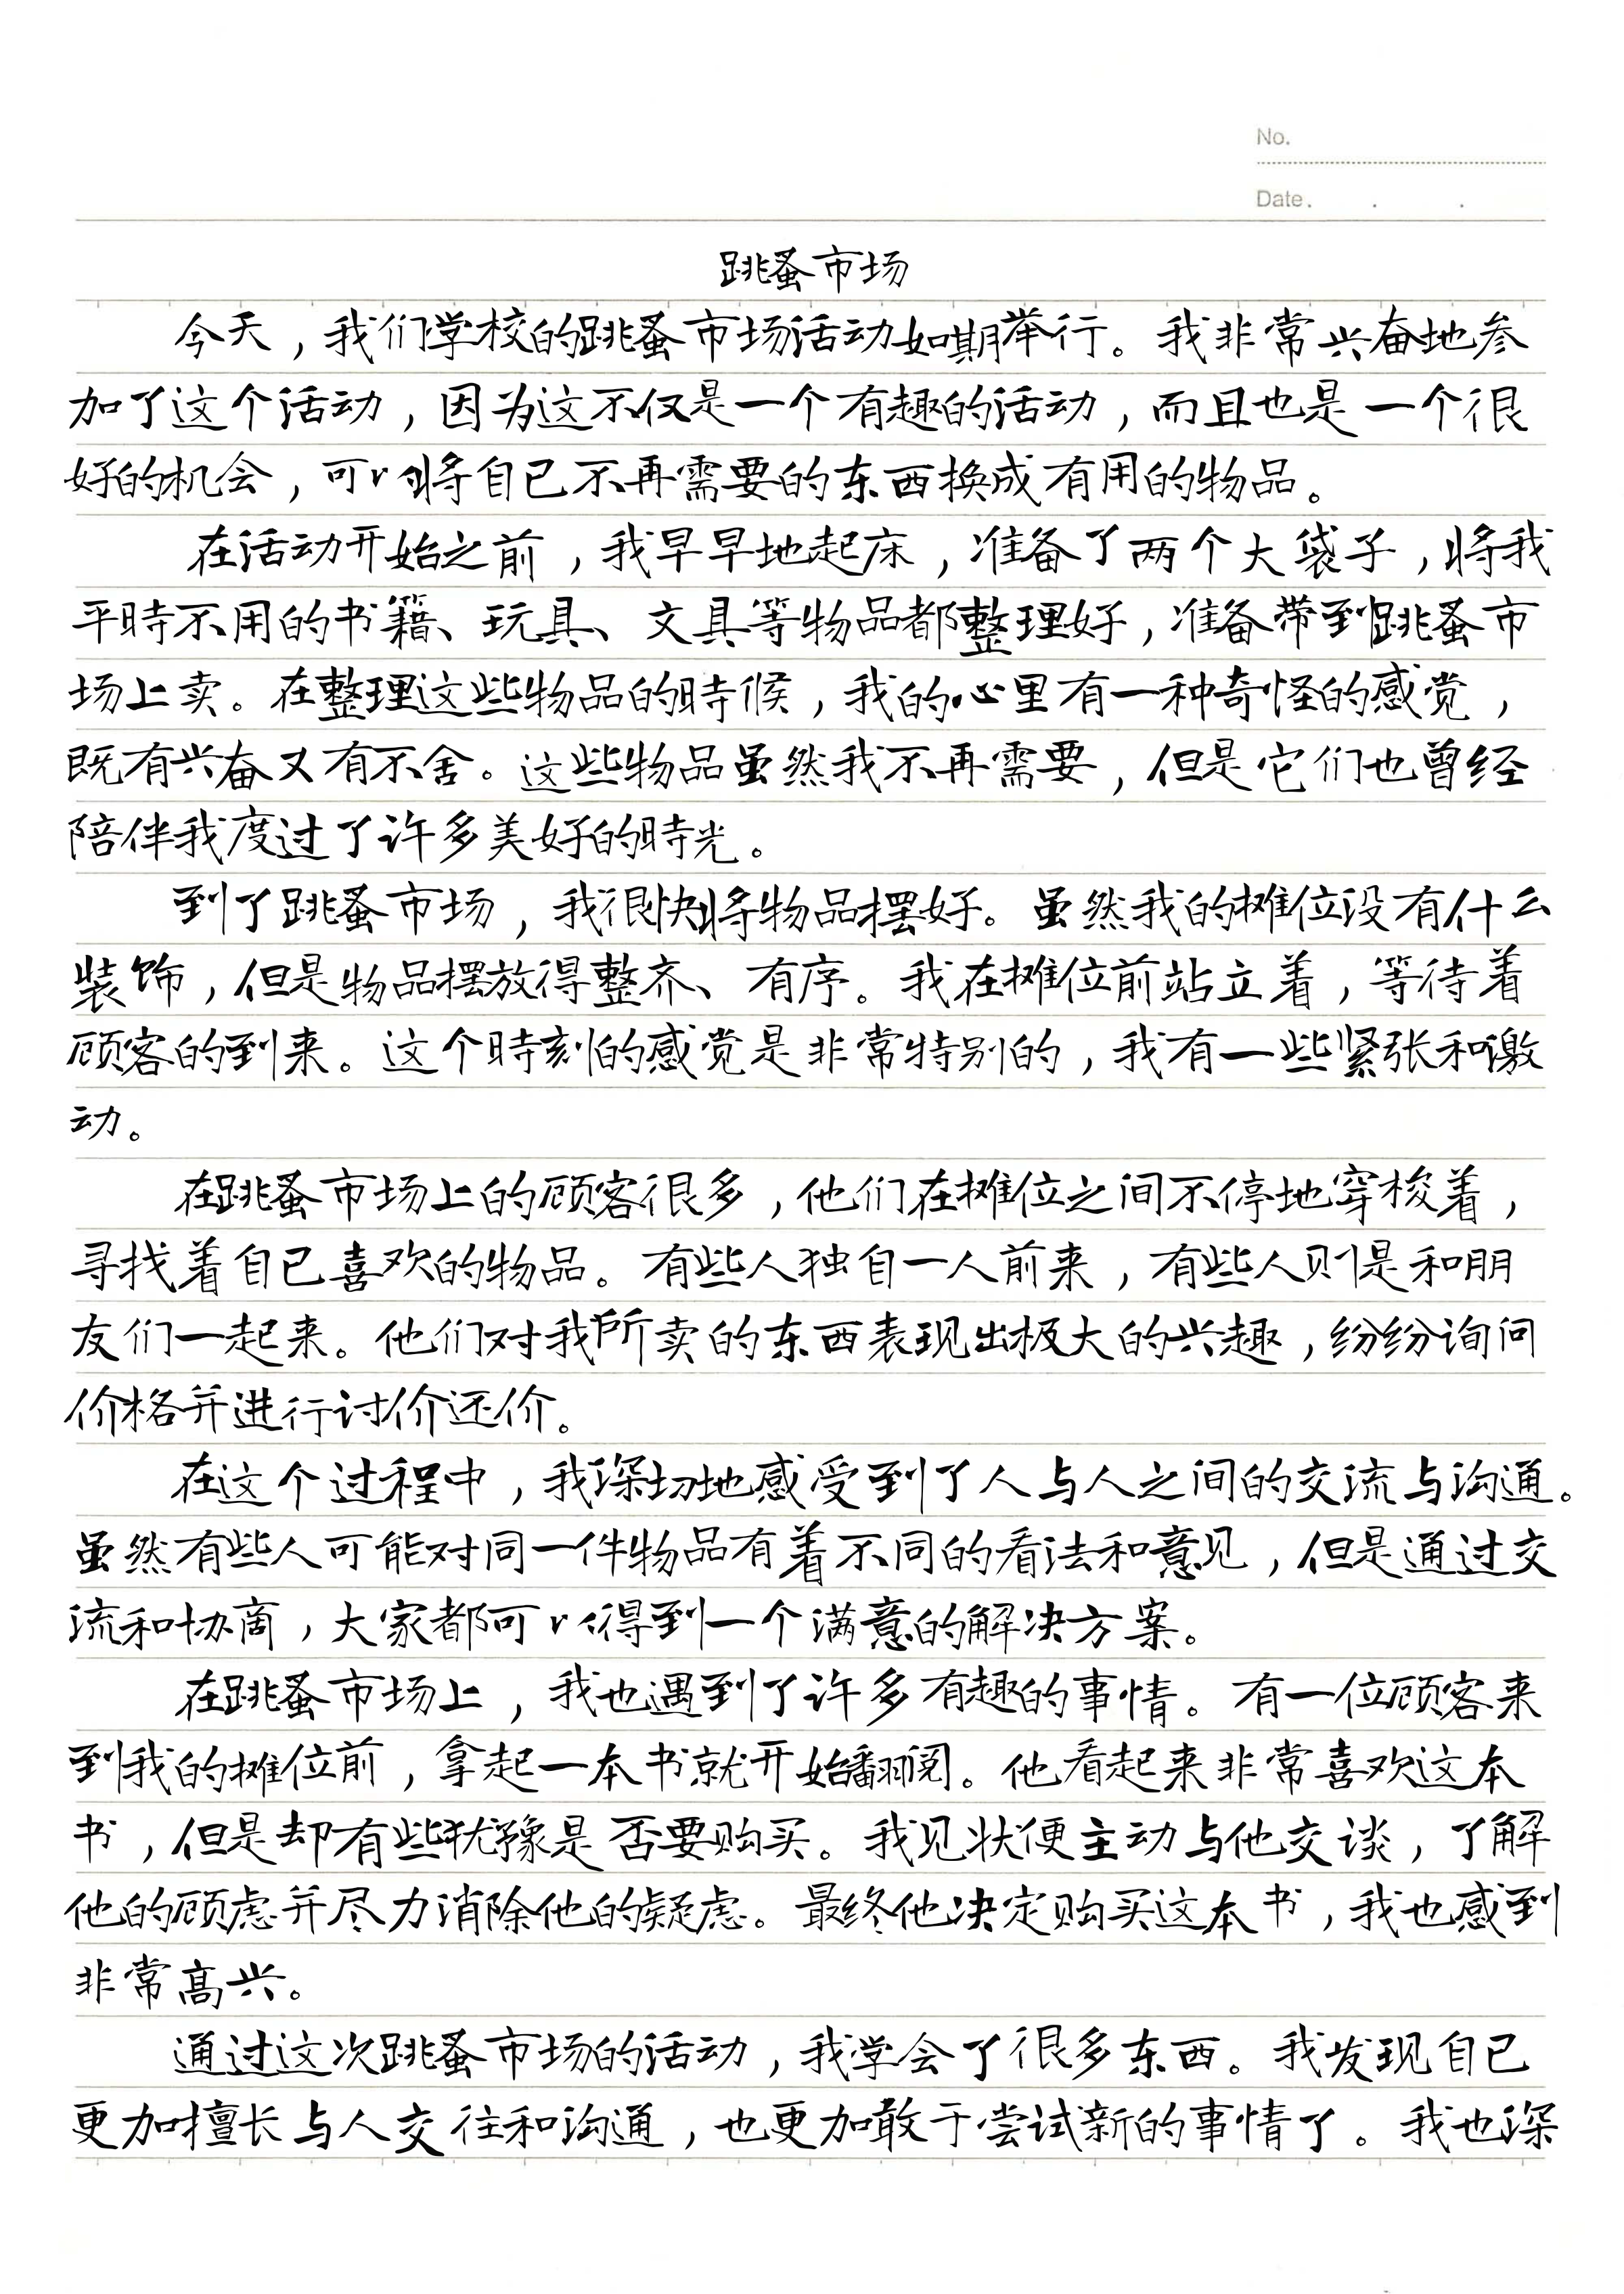 No.
Date . . .
跳蚤市场
今天，我们学校的跳蚤市场活动如期举行。我非常兴奋地参
加了这个活动，因为这不仅是一个有趣的活动，而且也是一个很
好的机会，可以将自己不再需要的东西换成有用的物品。
在活动开始之前，我早早地起床，准备了两个大袋子，将我
平時不用的书籍、玩具、文具等物品都整理好，准备带到跳蚤市
场上卖。在整理这些物品的時候，我的心里有一种奇怪的感觉，
既有兴奋又有不舍。这些物品虽然我不再需要，但是它们也曾经
陪伴我度过了许多美好的時光。
到了跳蚤市场，我很快将物品摆好。虽然我的摊位没有什么
装饰，但是物品摆放得整齐、有序。我在摊位前站立着，等待着
顾客的到来。这个時刻的感觉是非常特别的，我有一些紧张和激
动。
在跳蚤市场上的顾客很多，他们在摊位之间不停地穿梭着，
寻找着自己喜欢的物品。有些人独自一人前来，有些人则是和朋
友们一起来。他们对我所卖的东西表现出极大的兴趣，纷纷询问
价格并进行讨价还价。
在这个过程中，我深切地感受到了人与人之间的交流与沟通。
虽然有些人可能对同一件物品有着不同的看法和意见，但是通过交
流和协商，大家都可以得到一个满意的解决方案。
在跳蚤市场上，我也遇到了许多有趣的事情。有一位顾客来
到我的摊位前，拿起一本书就开始翻阅。他看起来非常喜欢这本
书，但是却有些犹豫是否要购买。我见状便主动与他交谈，了解
他的顾虑并尽力消除他的疑虑。最终他决定购买这本书，我也感到
非常高兴。
通过这次跳蚤市场的活动，我学会了很多东西。我发现自己
更加擅长与人交往和沟通，也更加敢于尝试新的事情了。我也深